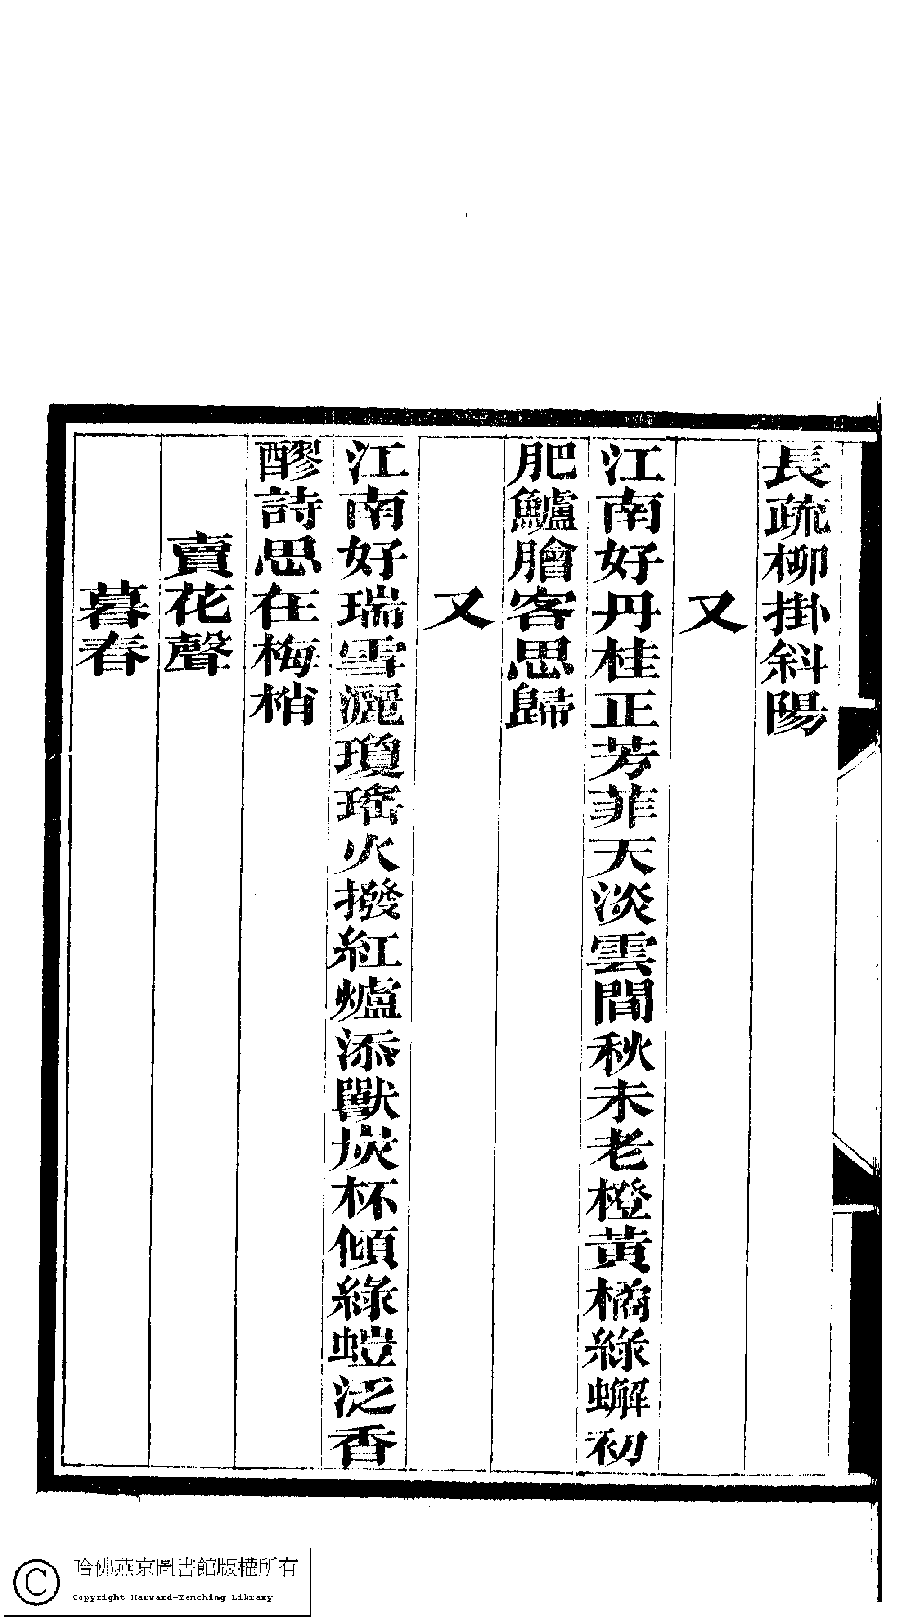 長疏柳掛斜陽
又
江南好丹桂正芳菲天淡雲間秋未老橙黃橘綠蠏初
肥鱸膾客思歸
又
江南好瑞雪灑瓊瑤火撥紅爐添獸炭杯傾綠螘泛香
醪詩思在梅梢
賣花聲
暮春
哈佛燕京圖書館版權所有
Copyright Harvard-Yenching Library